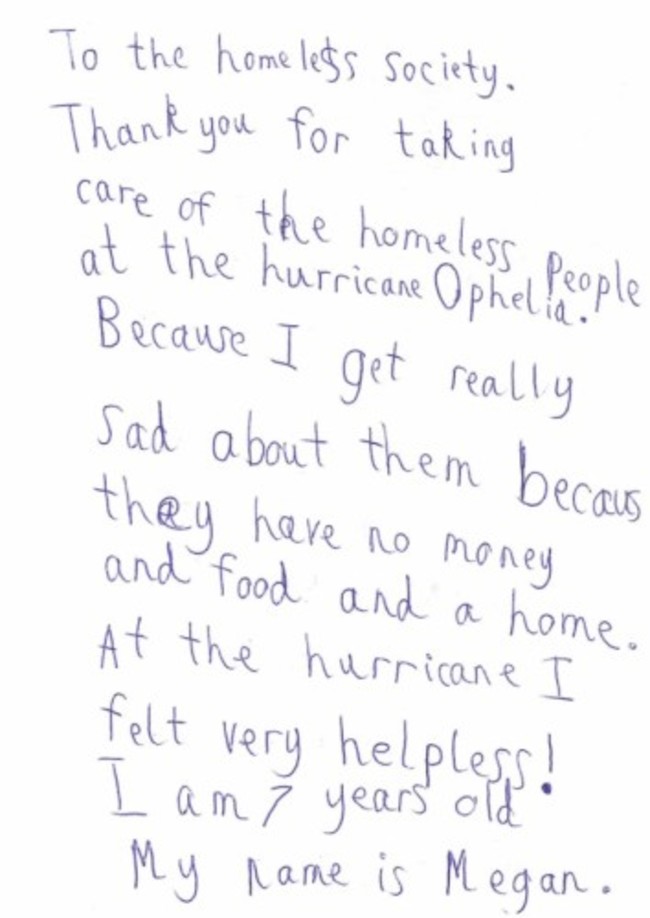 To the homeless society.
Thank you for taking
care of the homeless People
at the hurricane Ophelia.
Because I get really
sad about them becaus
they have no money
and food and a home.
At the hurricane I
felt very helpless!
I am 7 years old
My name is Megan.